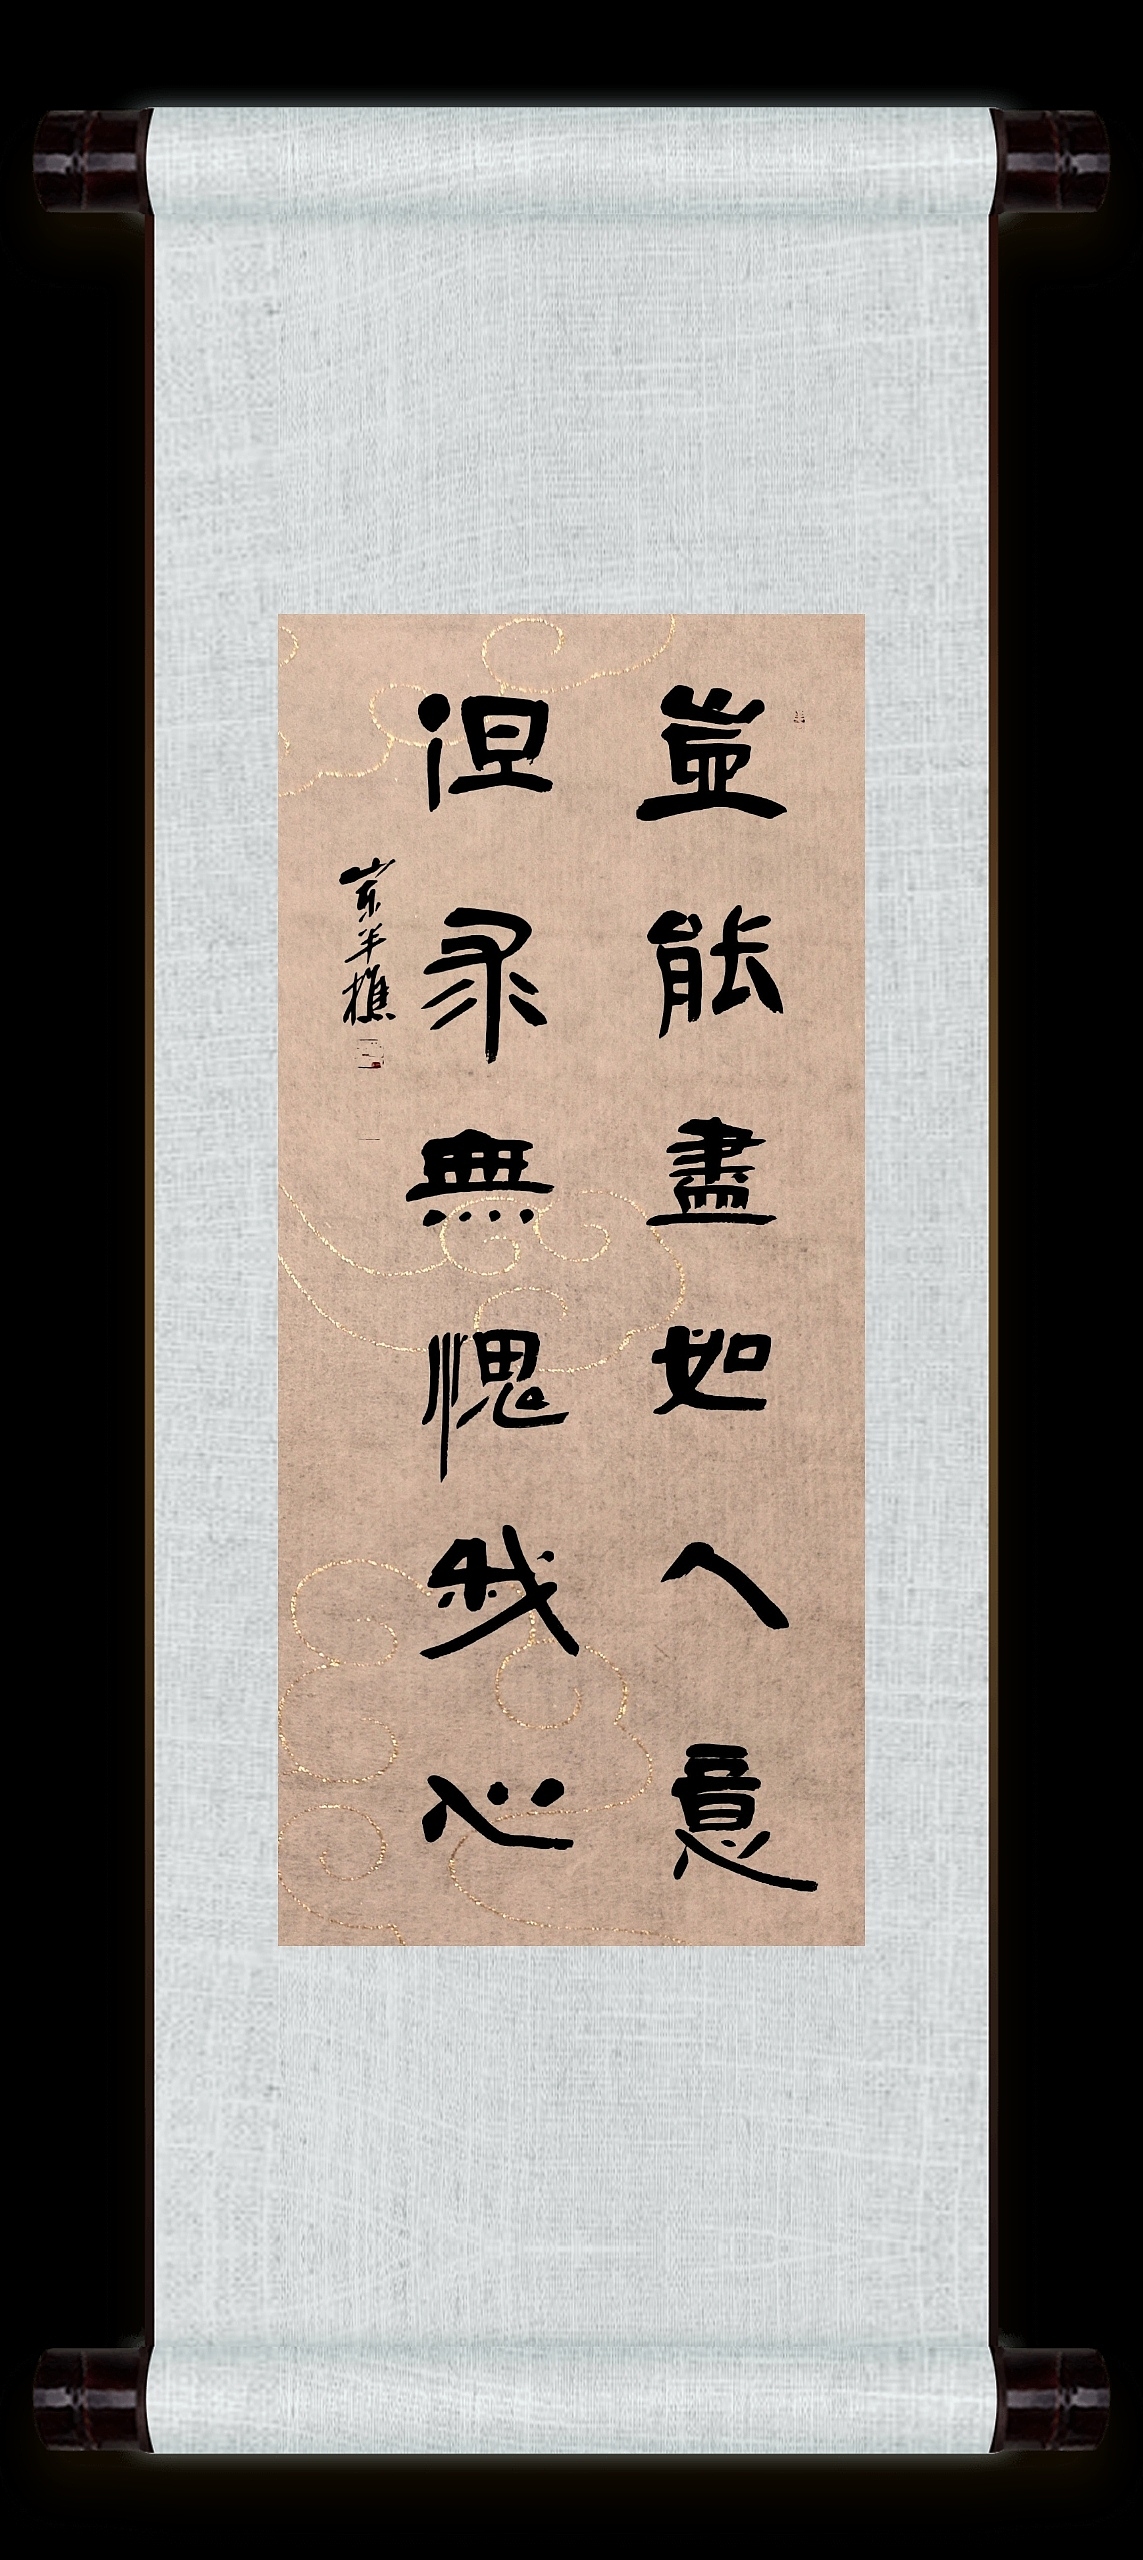 豈能盡如人意
但求無愧我心
崇羊樵